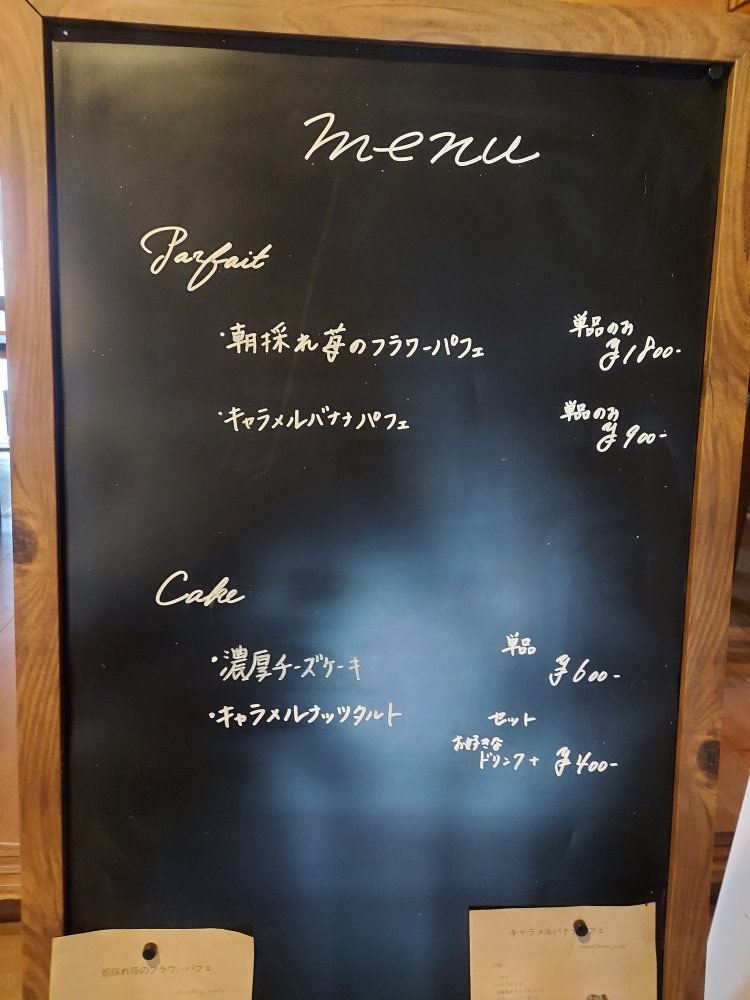 menu
Parfait
・朝採れ苺のフラワーパフェ 単品のみ
¥1800-
・キャラメルバナナパフェ 単品のみ
¥900-
Cake
・濃厚チーズケーキ 単品
¥600-
・キャラメルナッツタルト セット
お好きな
ドリンク+ ¥400-
朝採れ苺のフラワーパフェ
キャラメルバナナパフェ